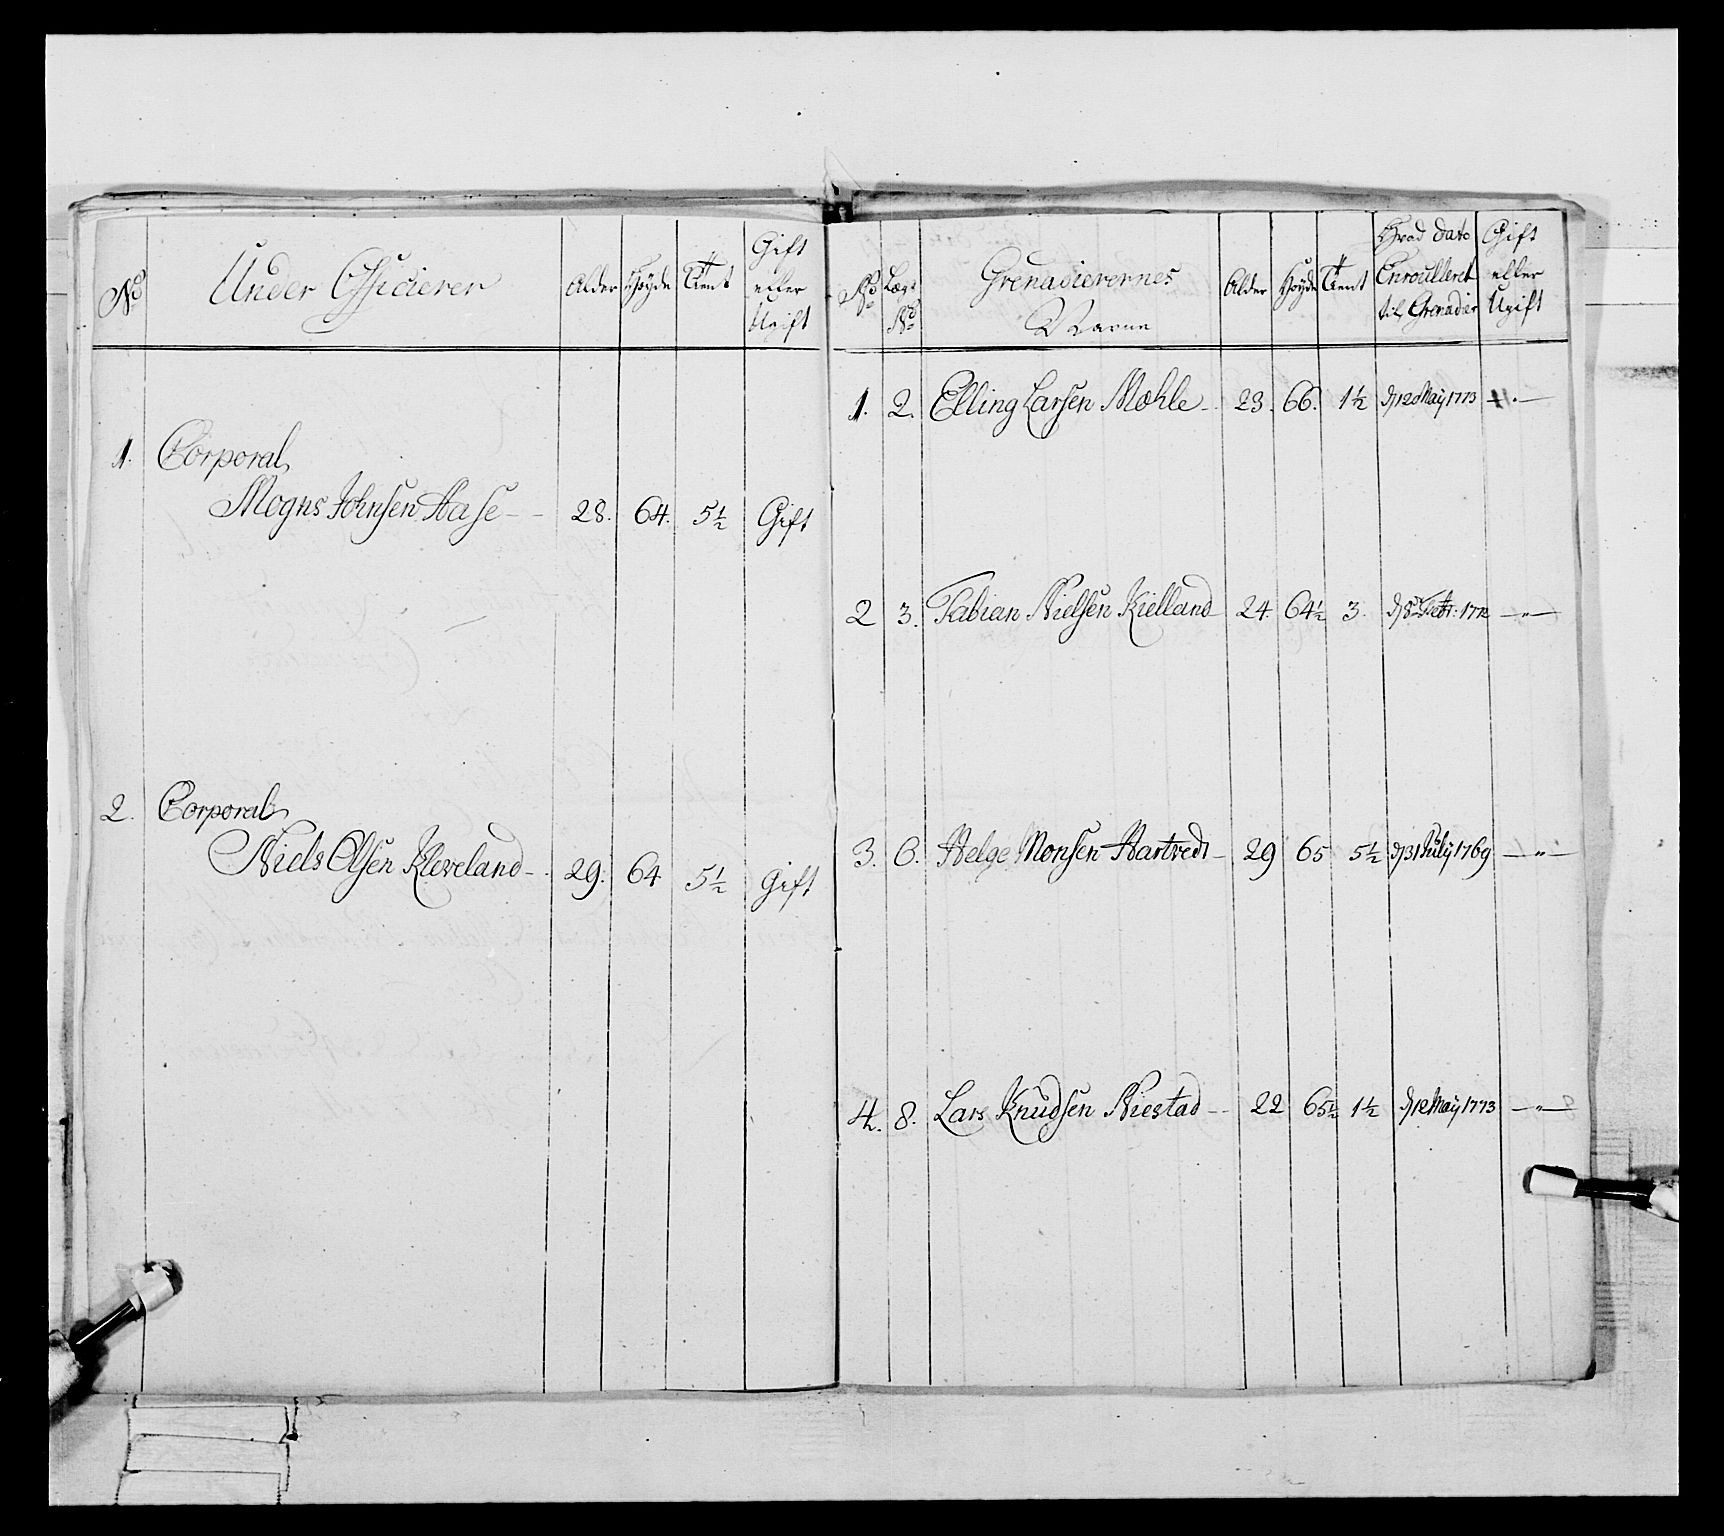 No
Under Officierer
Alder
Høyde
Tient
Gift
eller
Ugift
1. Corporal
Mogns Johnsen Aase 28. 64. 5½ Gift
2. Corporal
Niels Olsen Kleveland 29. 64 5½ Gift
No
Lægs
No
Grenadierernes
Navne
Alder
Høyde
Tient
Hvad dato
Enroulleret
til Grenadier
Gift
eller
Ugift
1. 2. Elling Larsen Mæhle 23. 66. 1½ d 12 May 1773
2 3. Fabian Nielsen Kielland 24. 64½ 3. 1772 — " —
3. 6. Helge Monsen Hartvedt 29 65 5½ d 31 July 1769 — " —
4. 8. Lars Knudsen Niestad 22 65½ 1½ d 12 May 1773 — " —